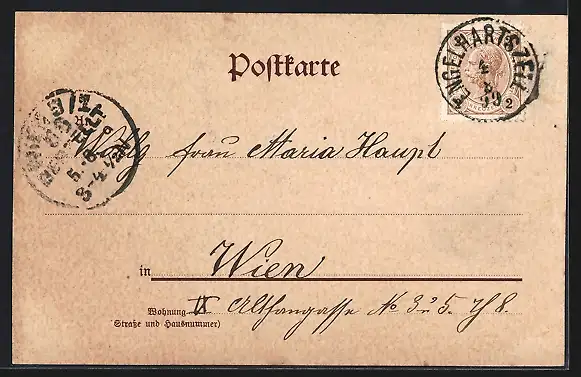 Postkarte
ENGELHARTSZELL
4 8
99
2
Wohlg Frau Maria Haupt
in Wien
Wohnung IX Althangasse No 3 u 5. Th 8.
(Straße und Hausnummer)